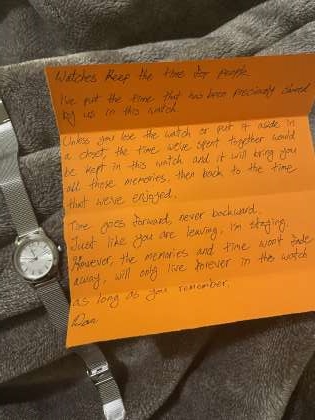 Watches keep the time for people.
I've put the time that has been preciously shared
by us in this watch
Unless you lose the watch or put it aside in
a closet, the time we've spent together would
be kept in this watch and it will bring you
all these memories, then back to the time
that we've enjoyed.
Time goes forward, never backward.
Just like you are leaving, I'm staying.
However, the memories and time won't fade
away, will only live forever in this watch
as long as you remember.